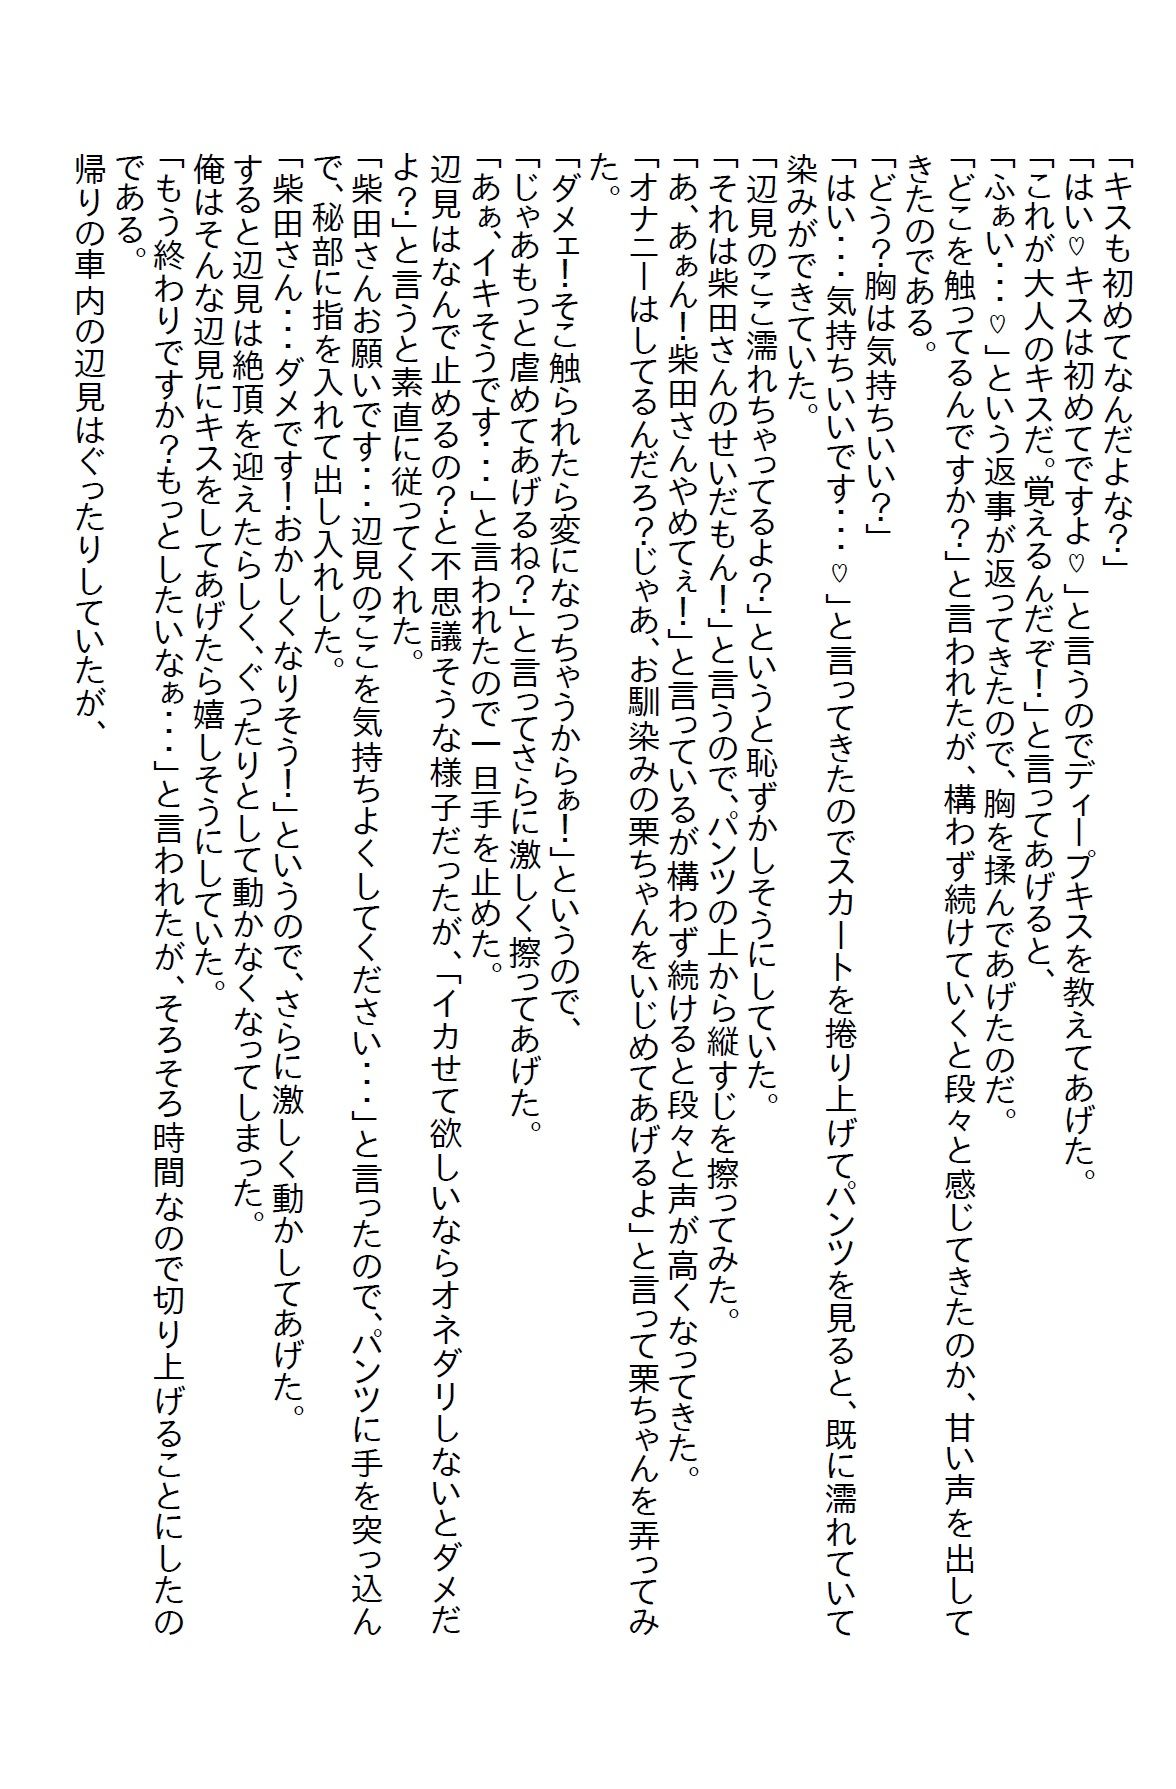 「キスも初めてなんだよな？」
「はい♡キスは初めてですよ♡」と言うのでディープキスを教えてあげた。
「これが大人のキスだ。覚えるんだぞ！」と言ってあげると、
「ふぁい・・・♡」という返事が返ってきたので、胸を揉んであげたのだ。
「どこを触ってるんですか？」と言われたが、構わず続けていくと段々と感じてきたのか、甘い声を出して
きたのである。
「どう？胸は気持ちいい？」
「はい・・・気持ちいいです・・・♡」と言ってきたのでスカートを捲り上げてパンツを見ると、既に濡れていて
染みができていた。
「辺見のここ濡れちゃってるよ？」というと恥ずかしそうにしていた。
「それは柴田さんのせいだもん！」と言うので、パンツの上から縦すじを擦ってみた。
「あ、あぁん！柴田さんやめてぇ！」と言っているが構わず続けると段々と声が高くなってきた。
「オナニーはしてるんだろ？じゃあ、お馴染みの栗ちゃんをいじめてあげるよ」と言って栗ちゃんを弄ってみ
た。
「ダメェ！そこ触られたら変になっちゃうからぁ！」というので、
「じゃあもっと虐めてあげるね？」と言ってさらに激しく擦ってあげた。
「あぁ、イキそうです・・・」と言われたので一旦手を止めた。
辺見はなんで止めるの？と不思議そうな様子だったが、「イカせて欲しいならオネダリしないとダメだ
よ？」と言うと素直に従ってくれた。
「柴田さんお願いです・・・辺見のここを気持ちよくしてください・・・」と言ったので、パンツに手を突っ込ん
で、秘部に指を入れて出し入れした。
「柴田さん・・・ダメです！おかしくなりそう！」というので、さらに激しく動かしてあげた。
すると辺見は絶頂を迎えたらしく、ぐったりとして動かなくなってしまった。
俺はそんな辺見にキスをしてあげたら嬉しそうにしていた。
「もう終わりですか？もっとしたいなぁ・・・」と言われたが、そろそろ時間なので切り上げることにしたの
である。
帰りの車内の辺見はぐったりしていたが、